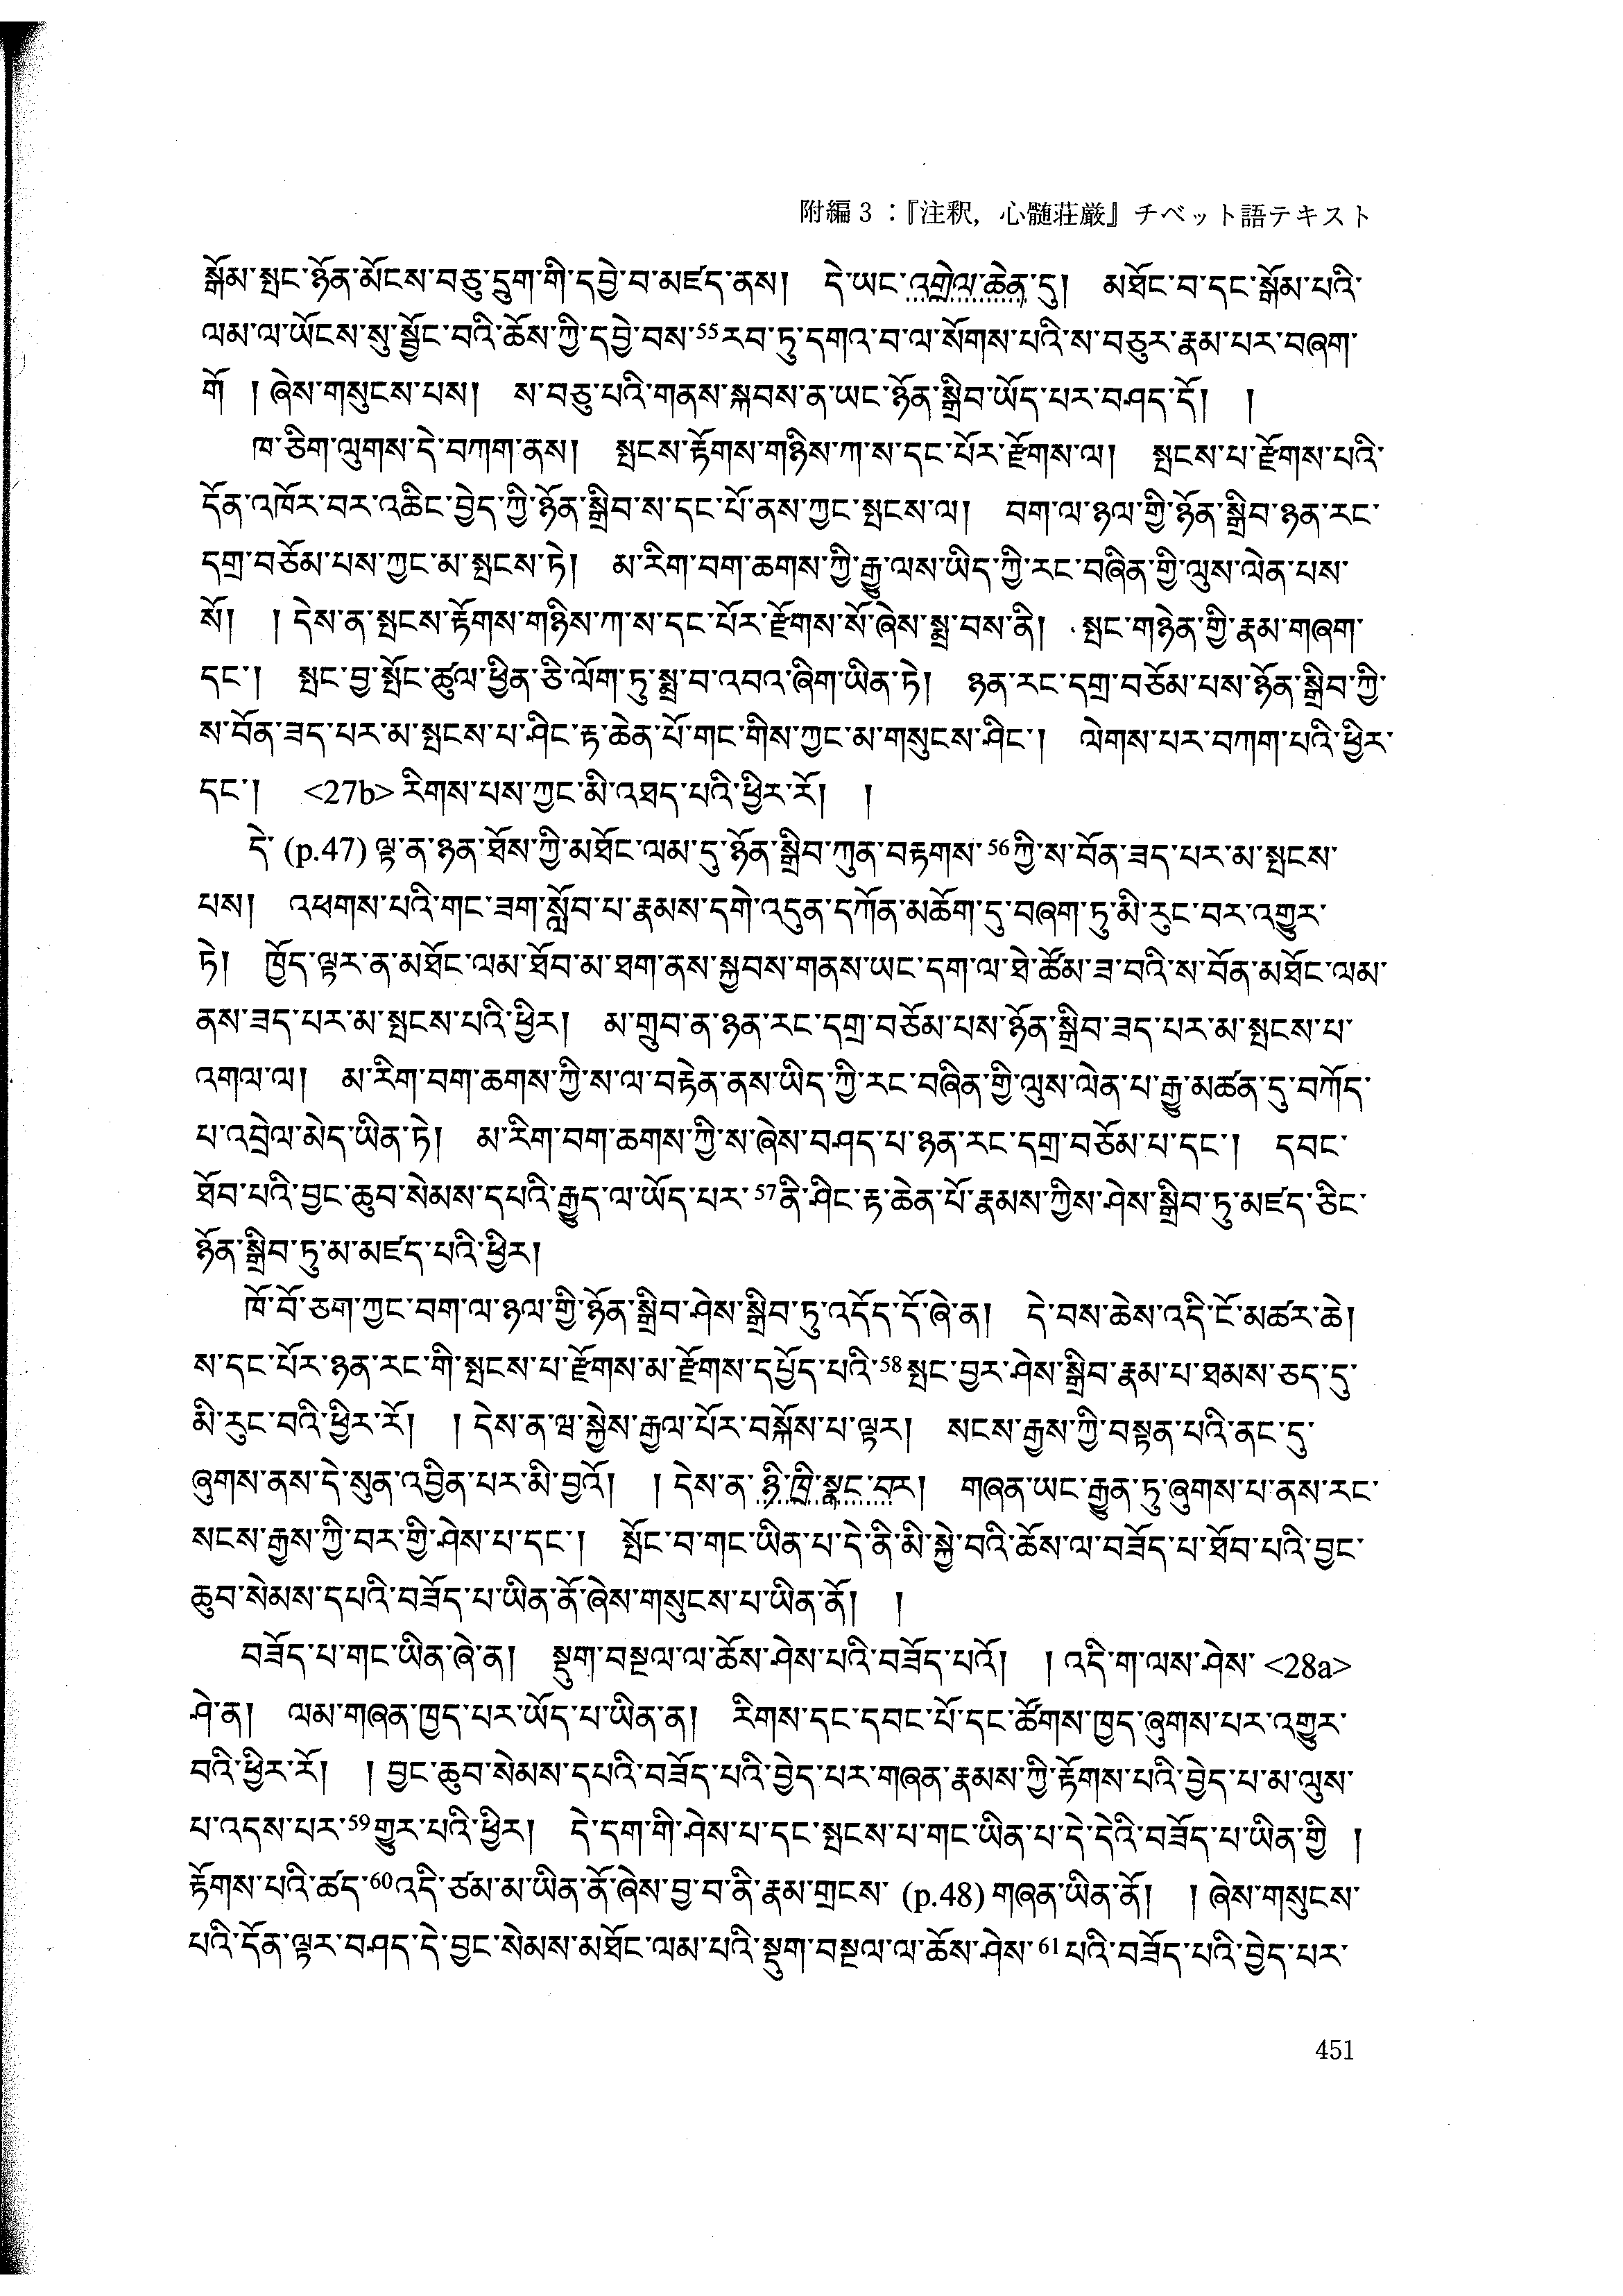 附編3：『注釈，心髄荘厳』チベット語テキスト
སྒོམ་སྤང་ཉོན་མོངས་བཅུ་དྲུག་གི་དབྱེ་བ་མཛད་ནས། དེ་ཡང་འགྲེལ་ཆེན་དུ། མཐོང་བ་དང་སྒོམ་པའི་
ལམ་ལ་ཡོངས་སུ་སྦྱོང་བའི་ཆོས་ཀྱི་དབྱེ་བས་55རབ་ཏུ་དགའ་བ་ལ་སོགས་པའི་ས་བཅུར་རྣམ་པར་བཞག་
གོ །ཞེས་གསུངས་པས། ས་བཅུ་པའི་གནས་སྐབས་ན་ཡང་ཉོན་སྒྲིབ་ཡོད་པར་བཤད་དོ། །
ཁ་ཅིག་ལུགས་དེ་བཀག་ནས། སྤངས་རྟོགས་གཉིས་ཀ་ས་དང་པོར་རྫོགས་ལ། སྤངས་པ་རྫོགས་པའི་
དོན་འཁོར་བར་འཆིང་བྱེད་ཀྱི་ཉོན་སྒྲིབ་ས་དང་པོ་ནས་ཀྱང་སྤངས་ལ། བག་ལ་ཉལ་གྱི་ཉོན་སྒྲིབ་ཉན་རང་
དགྲ་བཅོམ་པས་ཀྱང་མ་སྤངས་ཏེ། མ་རིག་བག་ཆགས་ཀྱི་རྒྱུ་ལས་ཡིད་ཀྱི་རང་བཞིན་གྱི་ལུས་ལེན་པས་
སོ། །དེས་ན་སྤངས་རྟོགས་གཉིས་ཀ་ས་དང་པོར་རྫོགས་སོ་ཞེས་སྨྲ་བས་ནི། སྤང་གཉེན་གྱི་རྣམ་གཞག་
དང་། སྤང་བྱ་སྤོང་ཚུལ་ཕྱིན་ཅི་ལོག་ཏུ་སྨྲ་བ་འབའ་ཞིག་ཡིན་ཏེ། ཉན་རང་དགྲ་བཅོམ་པས་ཉོན་སྒྲིབ་ཀྱི་
ས་བོན་ཟད་པར་མ་སྤངས་པ་ཤིང་རྟ་ཆེན་པོ་གང་གིས་ཀྱང་མ་གསུངས་ཤིང་། ལེགས་པར་བཀག་པའི་ཕྱིར་
དང་། <27b>རིགས་པས་ཀྱང་མི་འཐད་པའི་ཕྱིར་རོ། །
དེ་ (p.47) ལྟ་ན་ཉན་ཐོས་ཀྱི་མཐོང་ལམ་དུ་ཉོན་སྒྲིབ་ཀུན་བརྟགས་56ཀྱི་ས་བོན་ཟད་པར་མ་སྤངས་
པས། འཕགས་པའི་གང་ཟག་སློབ་པ་རྣམས་དགེ་འདུན་དཀོན་མཆོག་དུ་བཞག་ཏུ་མི་རུང་བར་འགྱུར་
ཏེ། ཁྱོད་ལྟར་ན་མཐོང་ལམ་ཐོབ་མ་ཐག་ནས་སྐྱབས་གནས་ཡང་དག་ལ་ཐེ་ཚོམ་ཟ་བའི་ས་བོན་མཐོང་ལམ་
ནས་ཟད་པར་མ་སྤངས་པའི་ཕྱིར། མ་གྲུབ་ན་ཉན་རང་དགྲ་བཅོམ་པས་ཉོན་སྒྲིབ་ཟད་པར་མ་སྤངས་པ་
འགལ་ལ། མ་རིག་བག་ཆགས་ཀྱི་ས་ལ་བརྟེན་ནས་ཡིད་ཀྱི་རང་བཞིན་གྱི་ལུས་ལེན་པ་རྒྱུ་མཚན་དུ་བཀོད་
པ་འབྲེལ་མེད་ཡིན་ཏེ། མ་རིག་བག་ཆགས་ཀྱི་ས་ཞེས་བཤད་པ་ཉན་རང་དགྲ་བཅོམ་པ་དང་། དབང་
ཐོབ་པའི་བྱང་ཆུབ་སེམས་དཔའི་རྒྱུད་ལ་ཡོད་པར་57ནི་ཤིང་རྟ་ཆེན་པོ་རྣམས་ཀྱིས་ཤེས་སྒྲིབ་ཏུ་མཛད་ཅིང་
ཉོན་སྒྲིབ་ཏུ་མ་མཛད་པའི་ཕྱིར།
ཁོ་བོ་ཅག་ཀྱང་བག་ལ་ཉལ་གྱི་ཉོན་སྒྲིབ་ཤེས་སྒྲིབ་ཏུ་འདོད་དོ་ཞེ་ན། དེ་བས་ཆེས་འདི་ངོ་མཚར་ཆེ།
ས་དང་པོར་ཉན་རང་གི་སྤངས་པ་རྫོགས་མ་རྫོགས་དཔྱོད་པའི་58སྤང་བྱར་ཤེས་སྒྲིབ་རྣམ་པ་ཐམས་ཅད་དུ་
མི་རུང་བའི་ཕྱིར་རོ། །དེས་ན་ཕ་སྐྱེས་རྒྱལ་པོར་བསྐོས་པ་ལྟར། སངས་རྒྱས་ཀྱི་བསྟན་པའི་ནང་དུ་
ཞུགས་ནས་དེ་སུན་འབྱིན་པར་མི་བྱའོ། །དེས་ན་ཉི་ཁྲི་སྣང་བར། གཞན་ཡང་རྒྱུན་ཏུ་ཞུགས་པ་ནས་རང་
སངས་རྒྱས་ཀྱི་བར་གྱི་ཤེས་པ་དང་། སྤོང་བ་གང་ཡིན་པ་དེ་ནི་མི་སྐྱེ་བའི་ཆོས་ལ་བཟོད་པ་ཐོབ་པའི་བྱང་
ཆུབ་སེམས་དཔའི་བཟོད་པ་ཡིན་ནོ་ཞེས་གསུངས་པ་ཡིན་ནོ། །
བཟོད་པ་གང་ཡིན་ཞེ་ན། སྡུག་བསྔལ་ལ་ཆོས་ཤེས་པའི་བཟོད་པའོ། །འདི་ག་ལས་ཤེས་ <28a>
ཤེ་ན། ལམ་གཞན་ཁྱད་པར་ཡོད་པ་ཡིན་ན། རིགས་དང་དབང་པོ་དང་ཚོགས་ཁྱད་ཞུགས་པར་འགྱུར་
བའི་ཕྱིར་རོ། །བྱང་ཆུབ་སེམས་དཔའི་བཟོད་པའི་བྱེད་པར་གཞན་རྣམས་ཀྱི་རྟོགས་པའི་བྱེད་པ་མ་ལུས་
པ་འདས་པར་59གྱུར་པའི་ཕྱིར། དེ་དག་གི་ཤེས་པ་དང་སྤངས་པ་གང་ཡིན་པ་དེ་དེའི་བཟོད་པ་ཡིན་གྱི །
རྟོགས་པའི་ཚད་60འདི་ཙམ་མ་ཡིན་ནོ་ཞེས་བྱ་བ་ནི་རྣམ་གྲངས་ (p.48) གཞན་ཡིན་ནོ། །ཞེས་གསུངས་
པའི་དོན་ལྟར་བཤད་དེ་བྱང་སེམས་མཐོང་ལམ་པའི་སྡུག་བསྔལ་ལ་ཆོས་ཤེས་61པའི་བཟོད་པའི་བྱེད་པར་
451